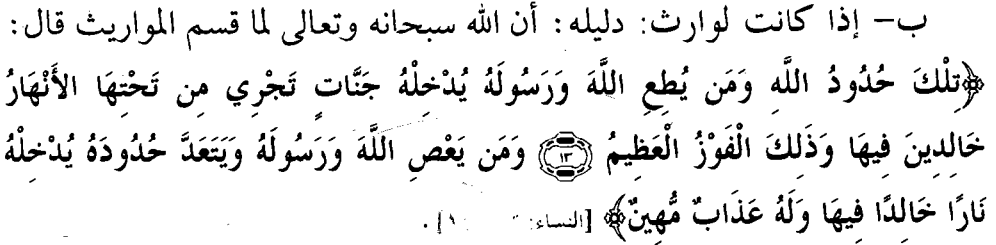 ب– إذا كانت لوارث: دليله: أن الله سبحانه وتعالى لما قسم المواريث قال:
﴿تِلْكَ حُدُودُ اللَّهِ وَمَن يُطِعِ اللَّهَ وَرَسُولَهُ يُدْخِلْهُ جَنَّاتٍ تَجْرِي مِن تَحْتِهَا الأَنْهَارُ
خَالِدِينَ فِيهَا وَذَلِكَ الْفَوْزُ الْعَظِيمُ ١٣ وَمَن يَعْصِ اللَّهَ وَرَسُولَهُ وَيَتَعَدَّ حُدُودَهُ يُدْخِلْهُ
نَارًا خَالِدًا فِيهَا وَلَهُ عَذَابٌ مُّهِينٌ﴾ [النساء: ].